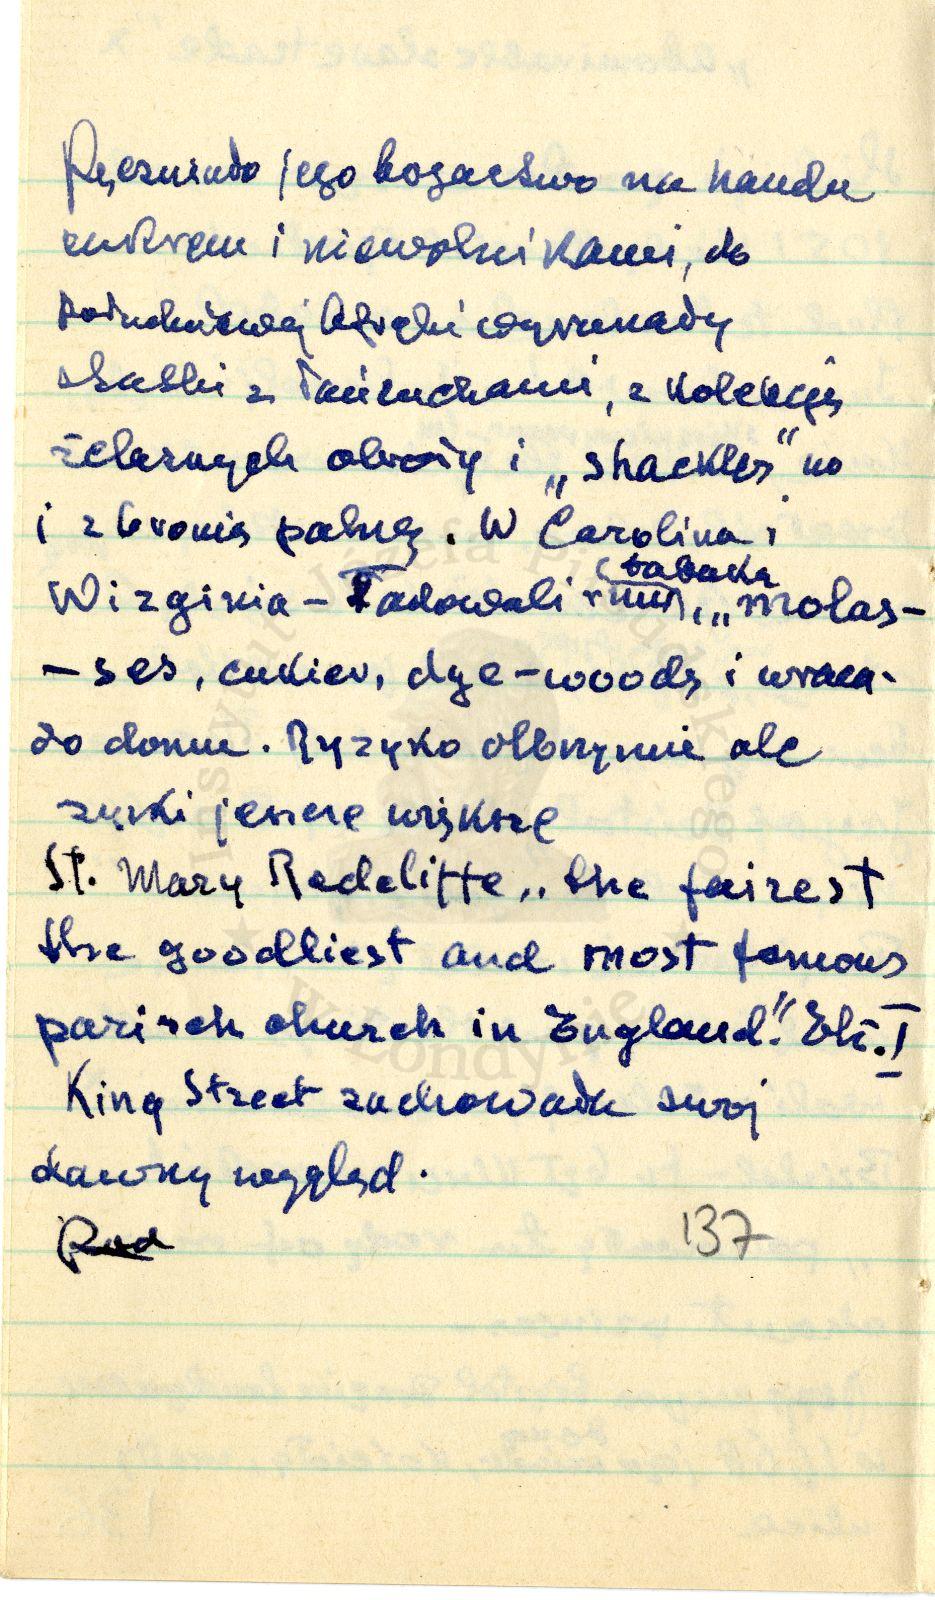 Pęczniało jego bogactwo na handlu
cukrem i niewolnikami, do
południowej Afryki wyruszały
statki z łańcuchami, z kolekcją
żelaznych obroży i „shackles" no
i z bronią palną. W Carolina i
Wirginia – ładowali rum, tabakę, „molas-
-ses, cukier, dye-woods i wraca-
do domu. Ryzyko olbrzymie ale
zyski jeszcze większe
St. Mary Redcliffe „the fairest
the goodliest and most famous
parisch church in England." Elż. I
King Street zachowała swój
dawny wygląd.
Rad
137
Instytut Józefa Piłsudskiego
w Londynie